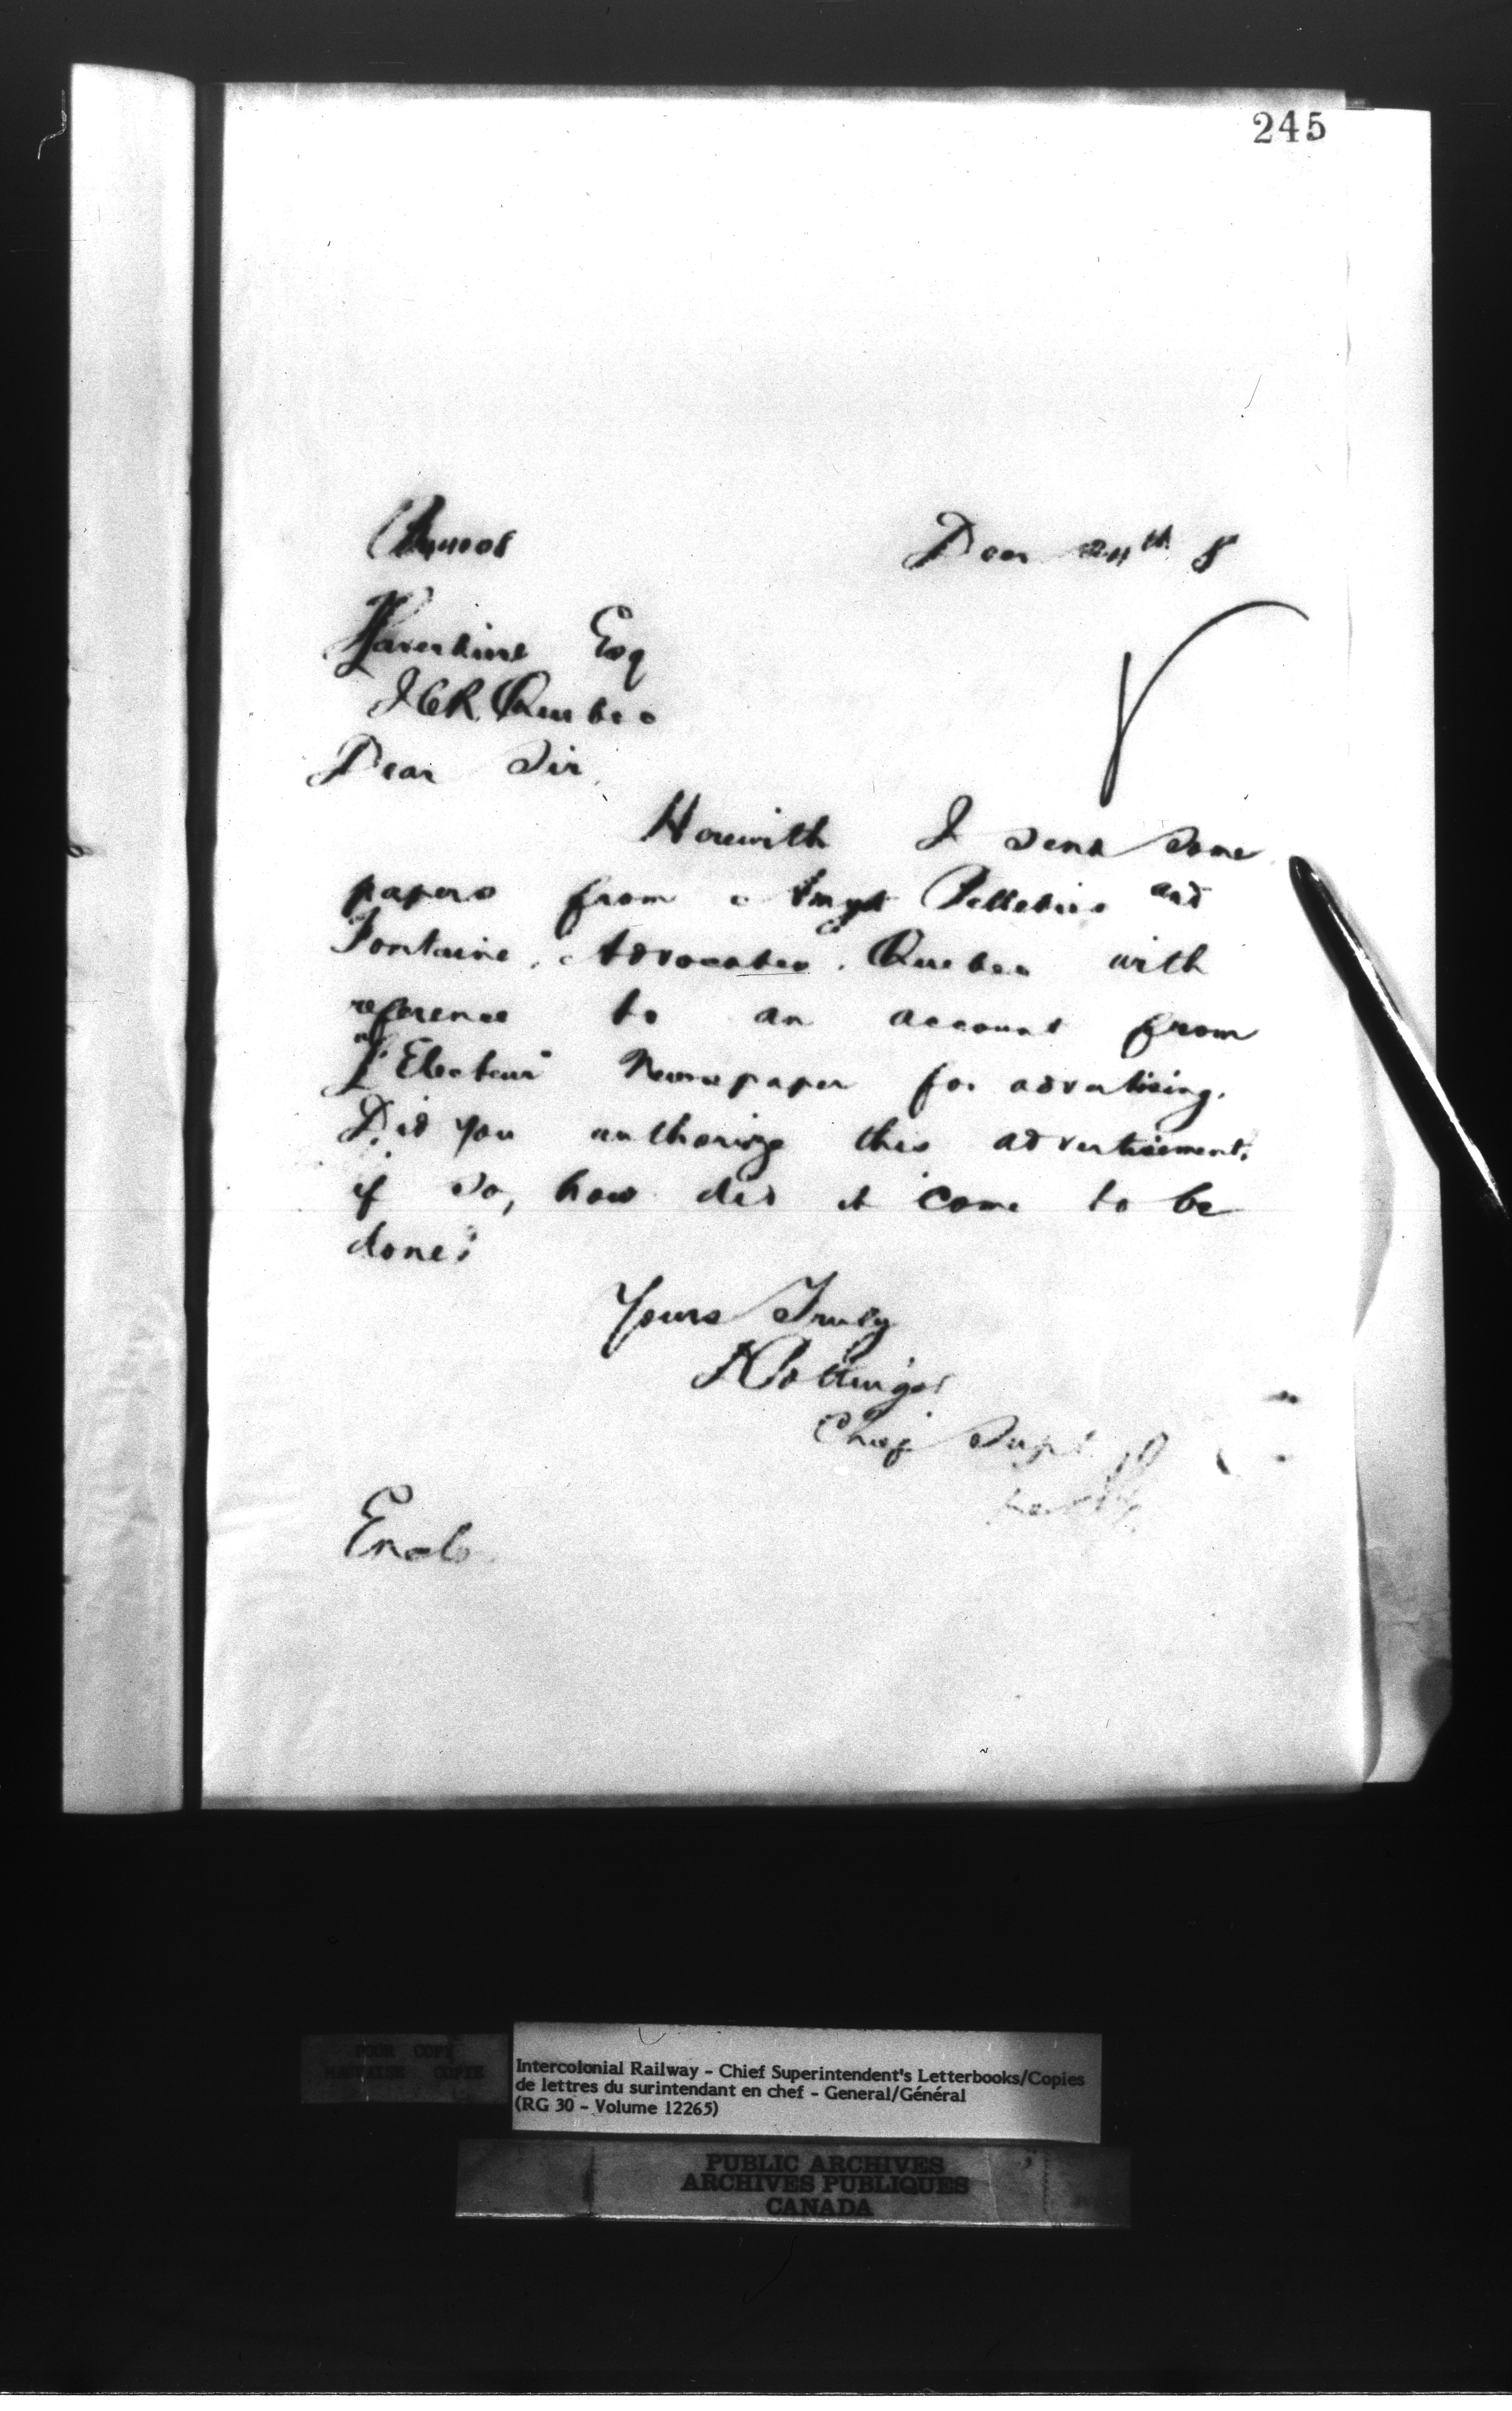 245
Decr 24th 8
Esq
ICR Quebec
Dear Sir,
Herewith I send some
papers from Amyot Pelletier and
Fontaine, Advocates, Quebec with
reference to an account from
"L'Electeur" Newspaper for advertising.
Did you authorize this advertisement,
if so, how did it come to be
done?
Yours Truly
DPottinger
Chief Supt
Enclo
POOR COPY
MAUVAISE COPIE
Intercolonial Railway - Chief Superintendent's Letterbooks/Copies
de lettres du surintendant en chef - General/Général
(RG 30 - Volume 12265)
PUBLIC ARCHIVES
ARCHIVES PUBLIQUES
CANADA